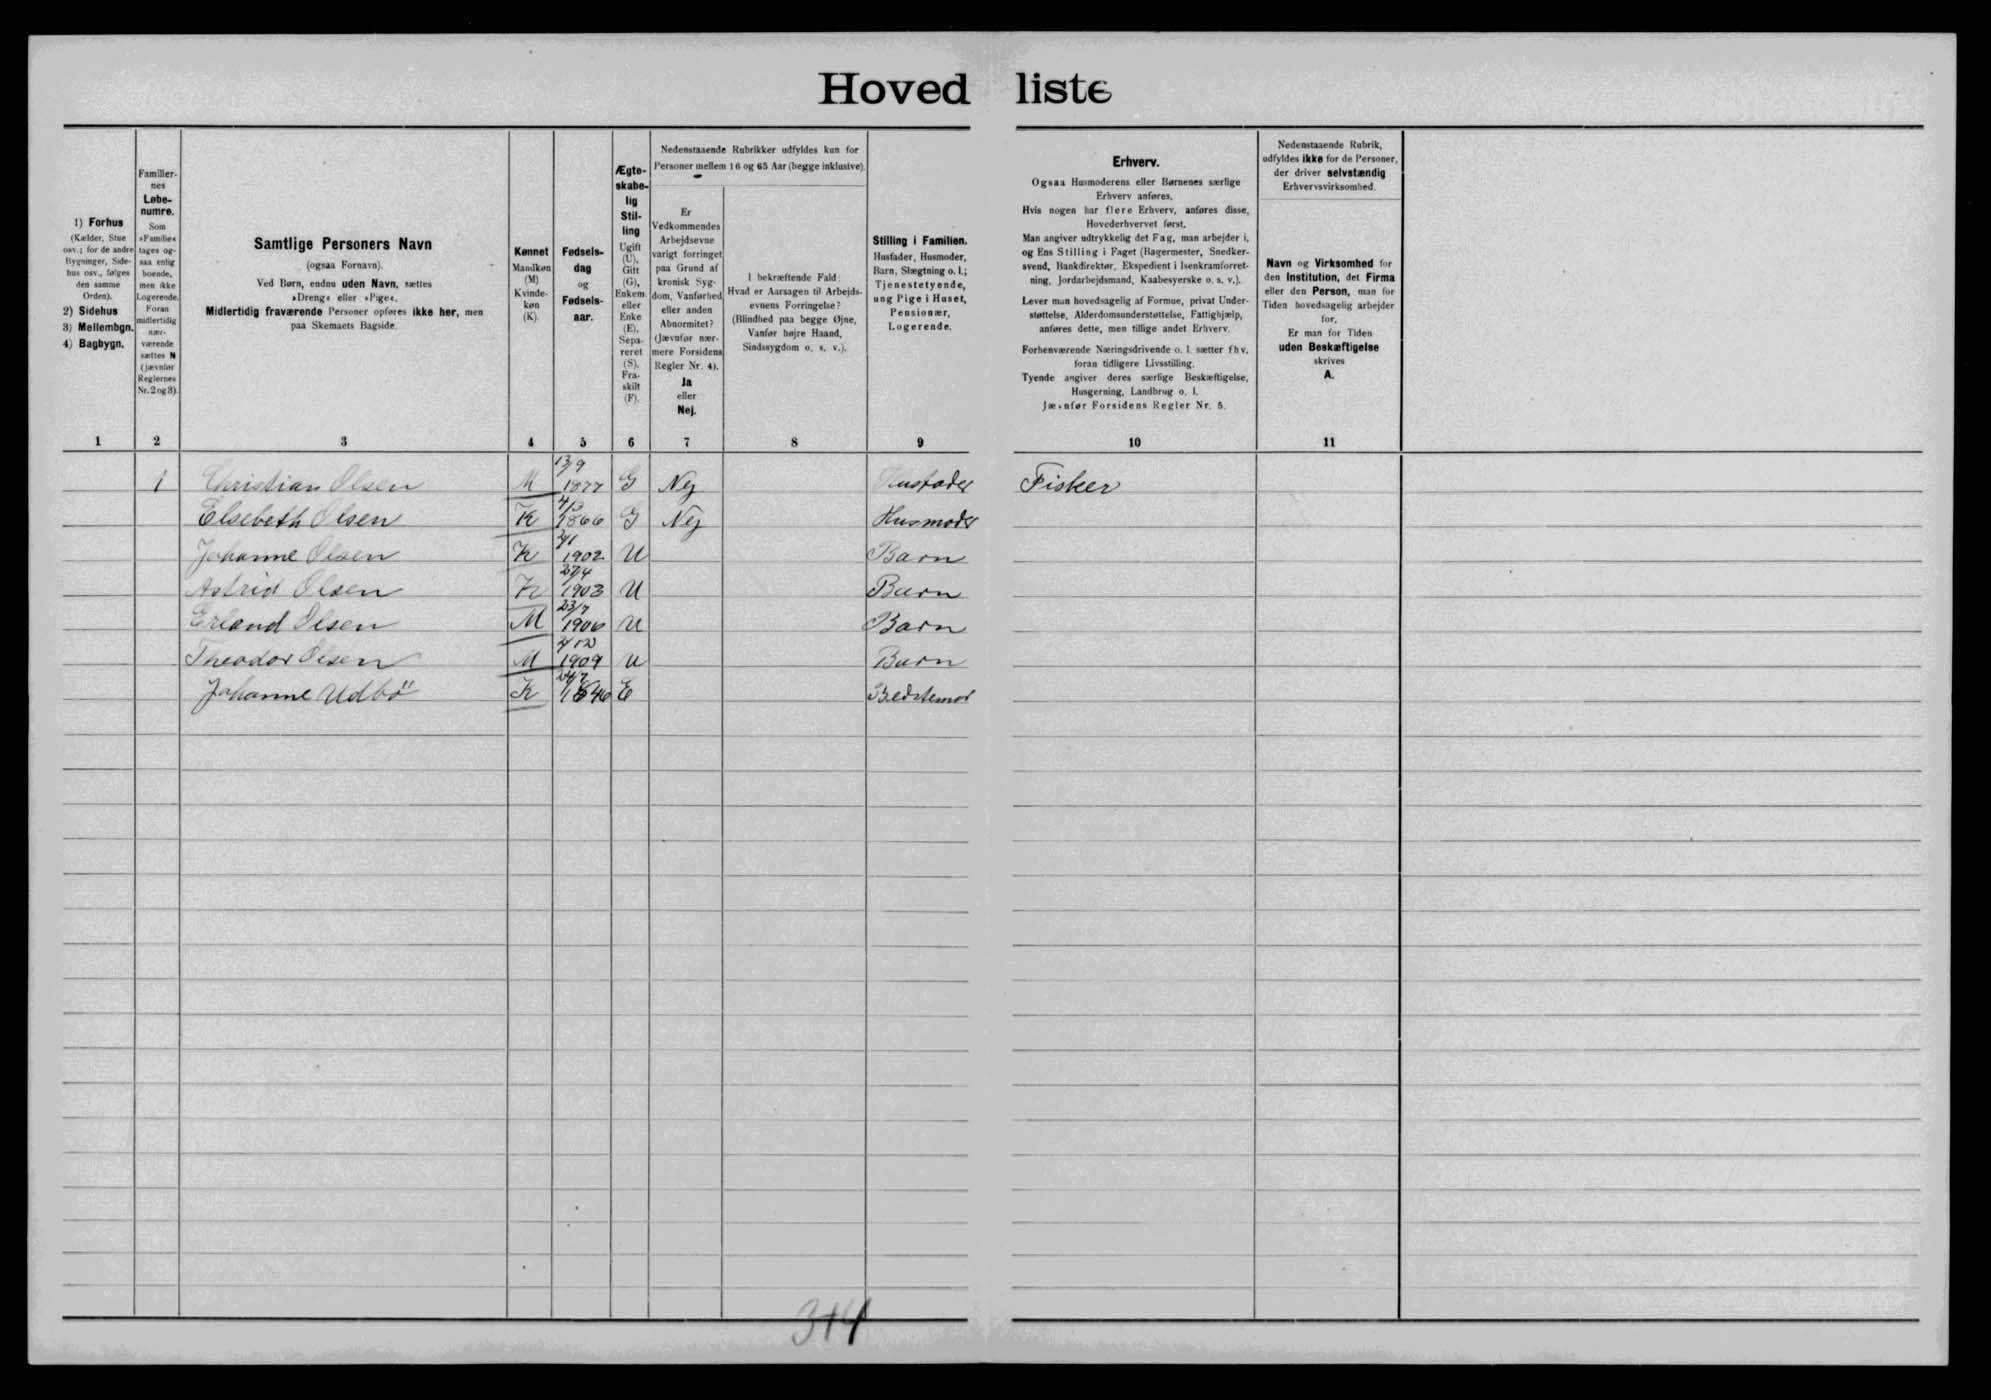 Hoved liste
1) Forhus
(Kælder, Stue
osv.; for de andre
Bygninger, Side-
hus osv., følges
den samme
Orden).
2) Sidehus
3) Mellembgn.
4) Bagbygn.
Familier-
nes
Løbe-
numre.
Som
»Familie«
tages og-
saa enlig
boende,
men ikke
Logerende.
Foran
midlertidig
nær-
værende
sættes N
(jævnfør
Reglernes
Nr. 2 og 3).
Samtlige Personers Navn
(ogsaa Fornavn).
Ved Børn, endnu uden Navn, sættes
»Dreng« eller »Pige«.
Midlertidig fraværende Personer opføres ikke her, men
paa Skemaets Bagside.
Kønnet
Mandkøn
(M)
Kvinde-
køn
(K).
Fødsels-
dag
og
Fødsels-
aar.
Ægte-
skabe-
lig
Stil-
ling
Ugift
(U),
Gift
(G),
Enkem.
eller
Enke
(E),
Sepa-
reret
(S),
Fra-
skilt
(F).
Nedenstaaende Rubrikker udfyldes kun for
Personer mellem 16 og 65 Aar (begge inklusive).
Er
Vedkommendes
Arbejdsevne
varigt forringet
paa Grund af
kronisk Syg-
dom, Vanførhed
eller anden
Abnormitet?
(Jævnfør nær-
mere Forsidens
Regler Nr. 4).
Ja
eller
Nej.
I bekræftende Fald:
Hvad er Aarsagen til Arbejds-
evnens Forringelse?
(Blindhed paa begge Øjne,
Vanfør højre Haand,
Sindssygdom o. s. v.).
Stilling i Familien.
Husfader, Husmoder,
Barn, Slægtning o. l.;
Tjenestetyende,
ung Pige i Huset,
Pensionær,
Logerende.
Erhverv.
Ogsaa Husmoderens eller Børnenes særlige
Erhverv anføres.
Hvis nogen har flere Erhverv, anføres disse,
Hovederhvervet først.
Man angiver udtrykkelig det Fag, man arbejder i,
og Ens Stilling i Faget (Bagermester, Snedker-
svend, Bankdirektør, Ekspedient i Isenkramforret-
ning, Jordarbejdsmand, Kaabesyerske o. s. v.).
Lever man hovedsagelig af Formue, privat Under-
støttelse, Alderdomsunderstøttelse, Fattighjælp,
anføres dette, men tillige andet Erhverv.
Forhenværende Næringsdrivende o. l. sætter fhv.
foran tidligere Livsstilling.
Tyende angiver deres særlige Beskæftigelse,
Husgerning, Landbrug o. l.
Jævnfør Forsidens Regler Nr. 5.
Nedenstaaende Rubrik,
udfyldes ikke for de Personer,
der driver selvstændig
Erhvervsvirksomhed.
Navn og Virksomhed for
den Institution, det Firma
eller den Person, man for
Tiden hovedsagelig arbejder
for.
Er man for Tiden
uden Beskæftigelse
skrives
A.
1 2 3 4 5 6 7 8 9 10 11
1 Christian Olsen M 13/9 1877 G Nej Husfader Fisker
Elsebeth Olsen K 4/3 1866 G Nej Husmoder
Johanne Olsen K 2/1 1902 U Barn
Astrid Olsen K 27/4 1903 U Barn
Erland Olsen M 23/7 1906 U Barn
Theodor Olsen M 2/12 1909 U Barn
Johanne Udbö K 24/7 1846 E Bedstemor
3+4